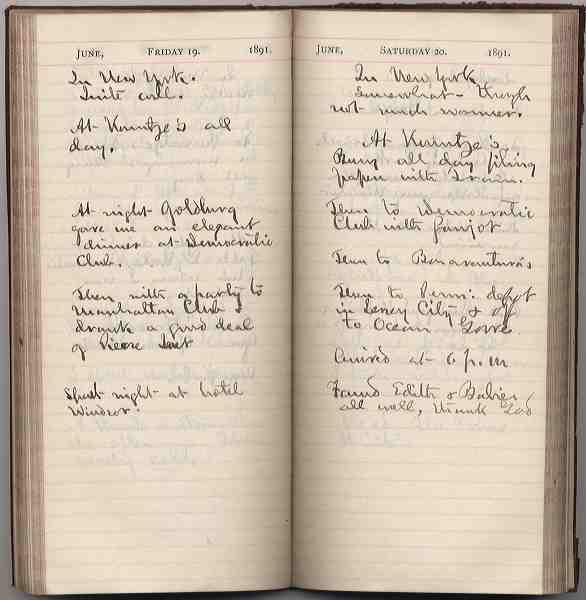 JUNE, FRIDAY 19. 1891.
In New York.
Quite cool.
At Kountze's all
day.
At night Goldburg
gave me an elegant
dinner at Democratic
Club.
Then with a party to
Manhattan Club &
drank a good deal
of
Spent night at hotel
Windsor.
JUNE, SATURDAY 20. 1891.
In New York
Somewhat - though
not much warmer.
At Kountze's,
Busy all day fixing
papers with
Then to Democratic
Club with
Then to Bonaventura's
Then to Penn: depot
in Jersey City & off
to Ocean Grove.
Arrived at 6 p.m
Found Edith & Babies
all well, thank God